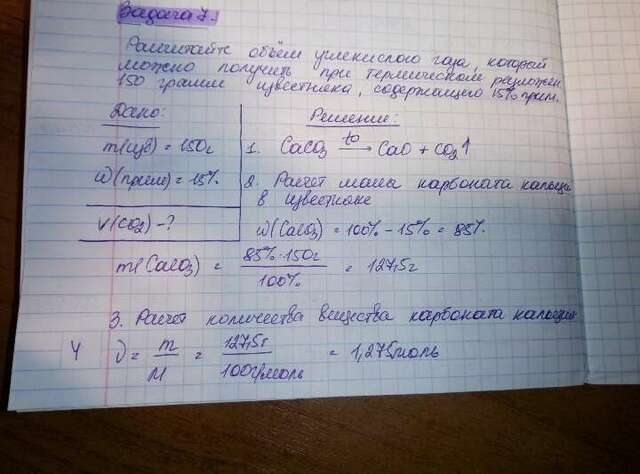 Задача 7.
Рассчитайте объём углекислого газа, который
можно получить при термическом разложен
150 грамм известняка, содержащего 15% прим.
Дано:
Решение:
m(изв) = 150г
1. CaCO3 to→ CaO + CO2↑
ω(прим) = 15%
2. Расчет массы карбоната кальция
в известняке
V(CO2) - ?
ω(CaCO3) = 100% - 15% = 85%
m(CaCO3) = 85%·150г / 100% = 127,5г
3. Расчет количества вещества карбоната кальция
ν = m / M = 127,5г / 100г/моль = 1,275моль